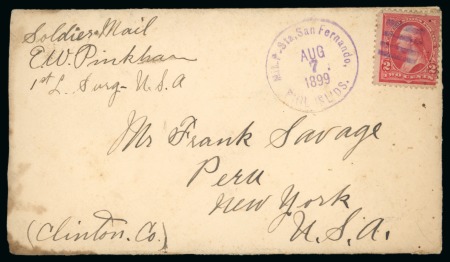 Soldiers Mail
E.W. Pinkham
1st L. Surg - U.S.A
Mil. P. Sta. San Fernando,
AUG
7
1899
PHIL. ISLDS.
2 2
TWO CENTS
Mr Frank Savage
Peru
New York
U.S.A.
(Clinton. Co.)